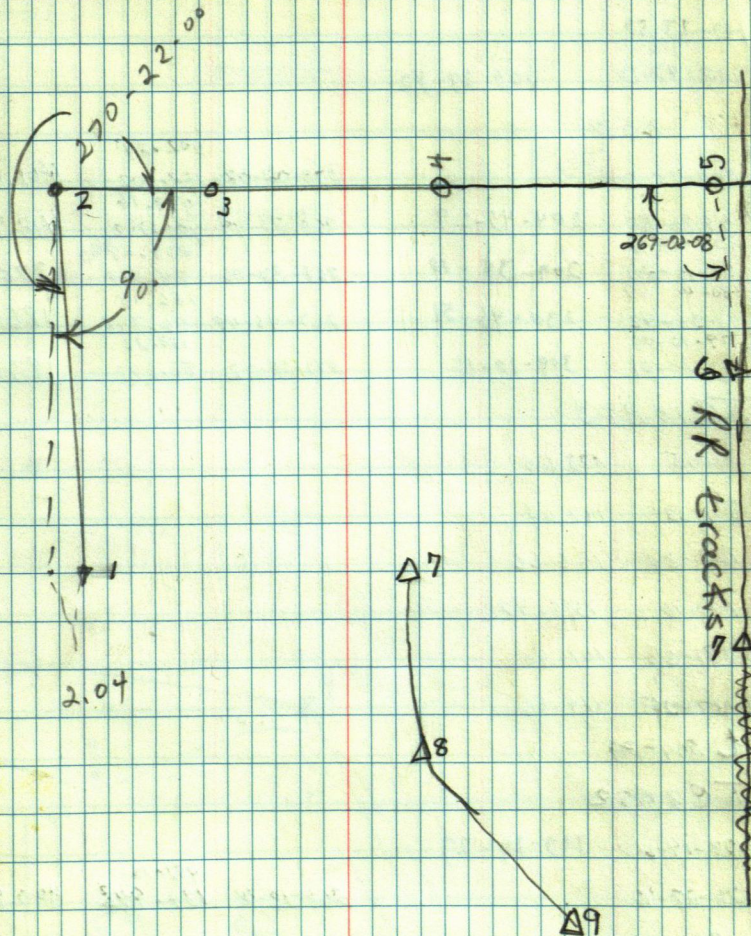 270-22-00
2
3
4
5
269-02-08
90°
6 RR tracks
1
7
7
2.04
8
9